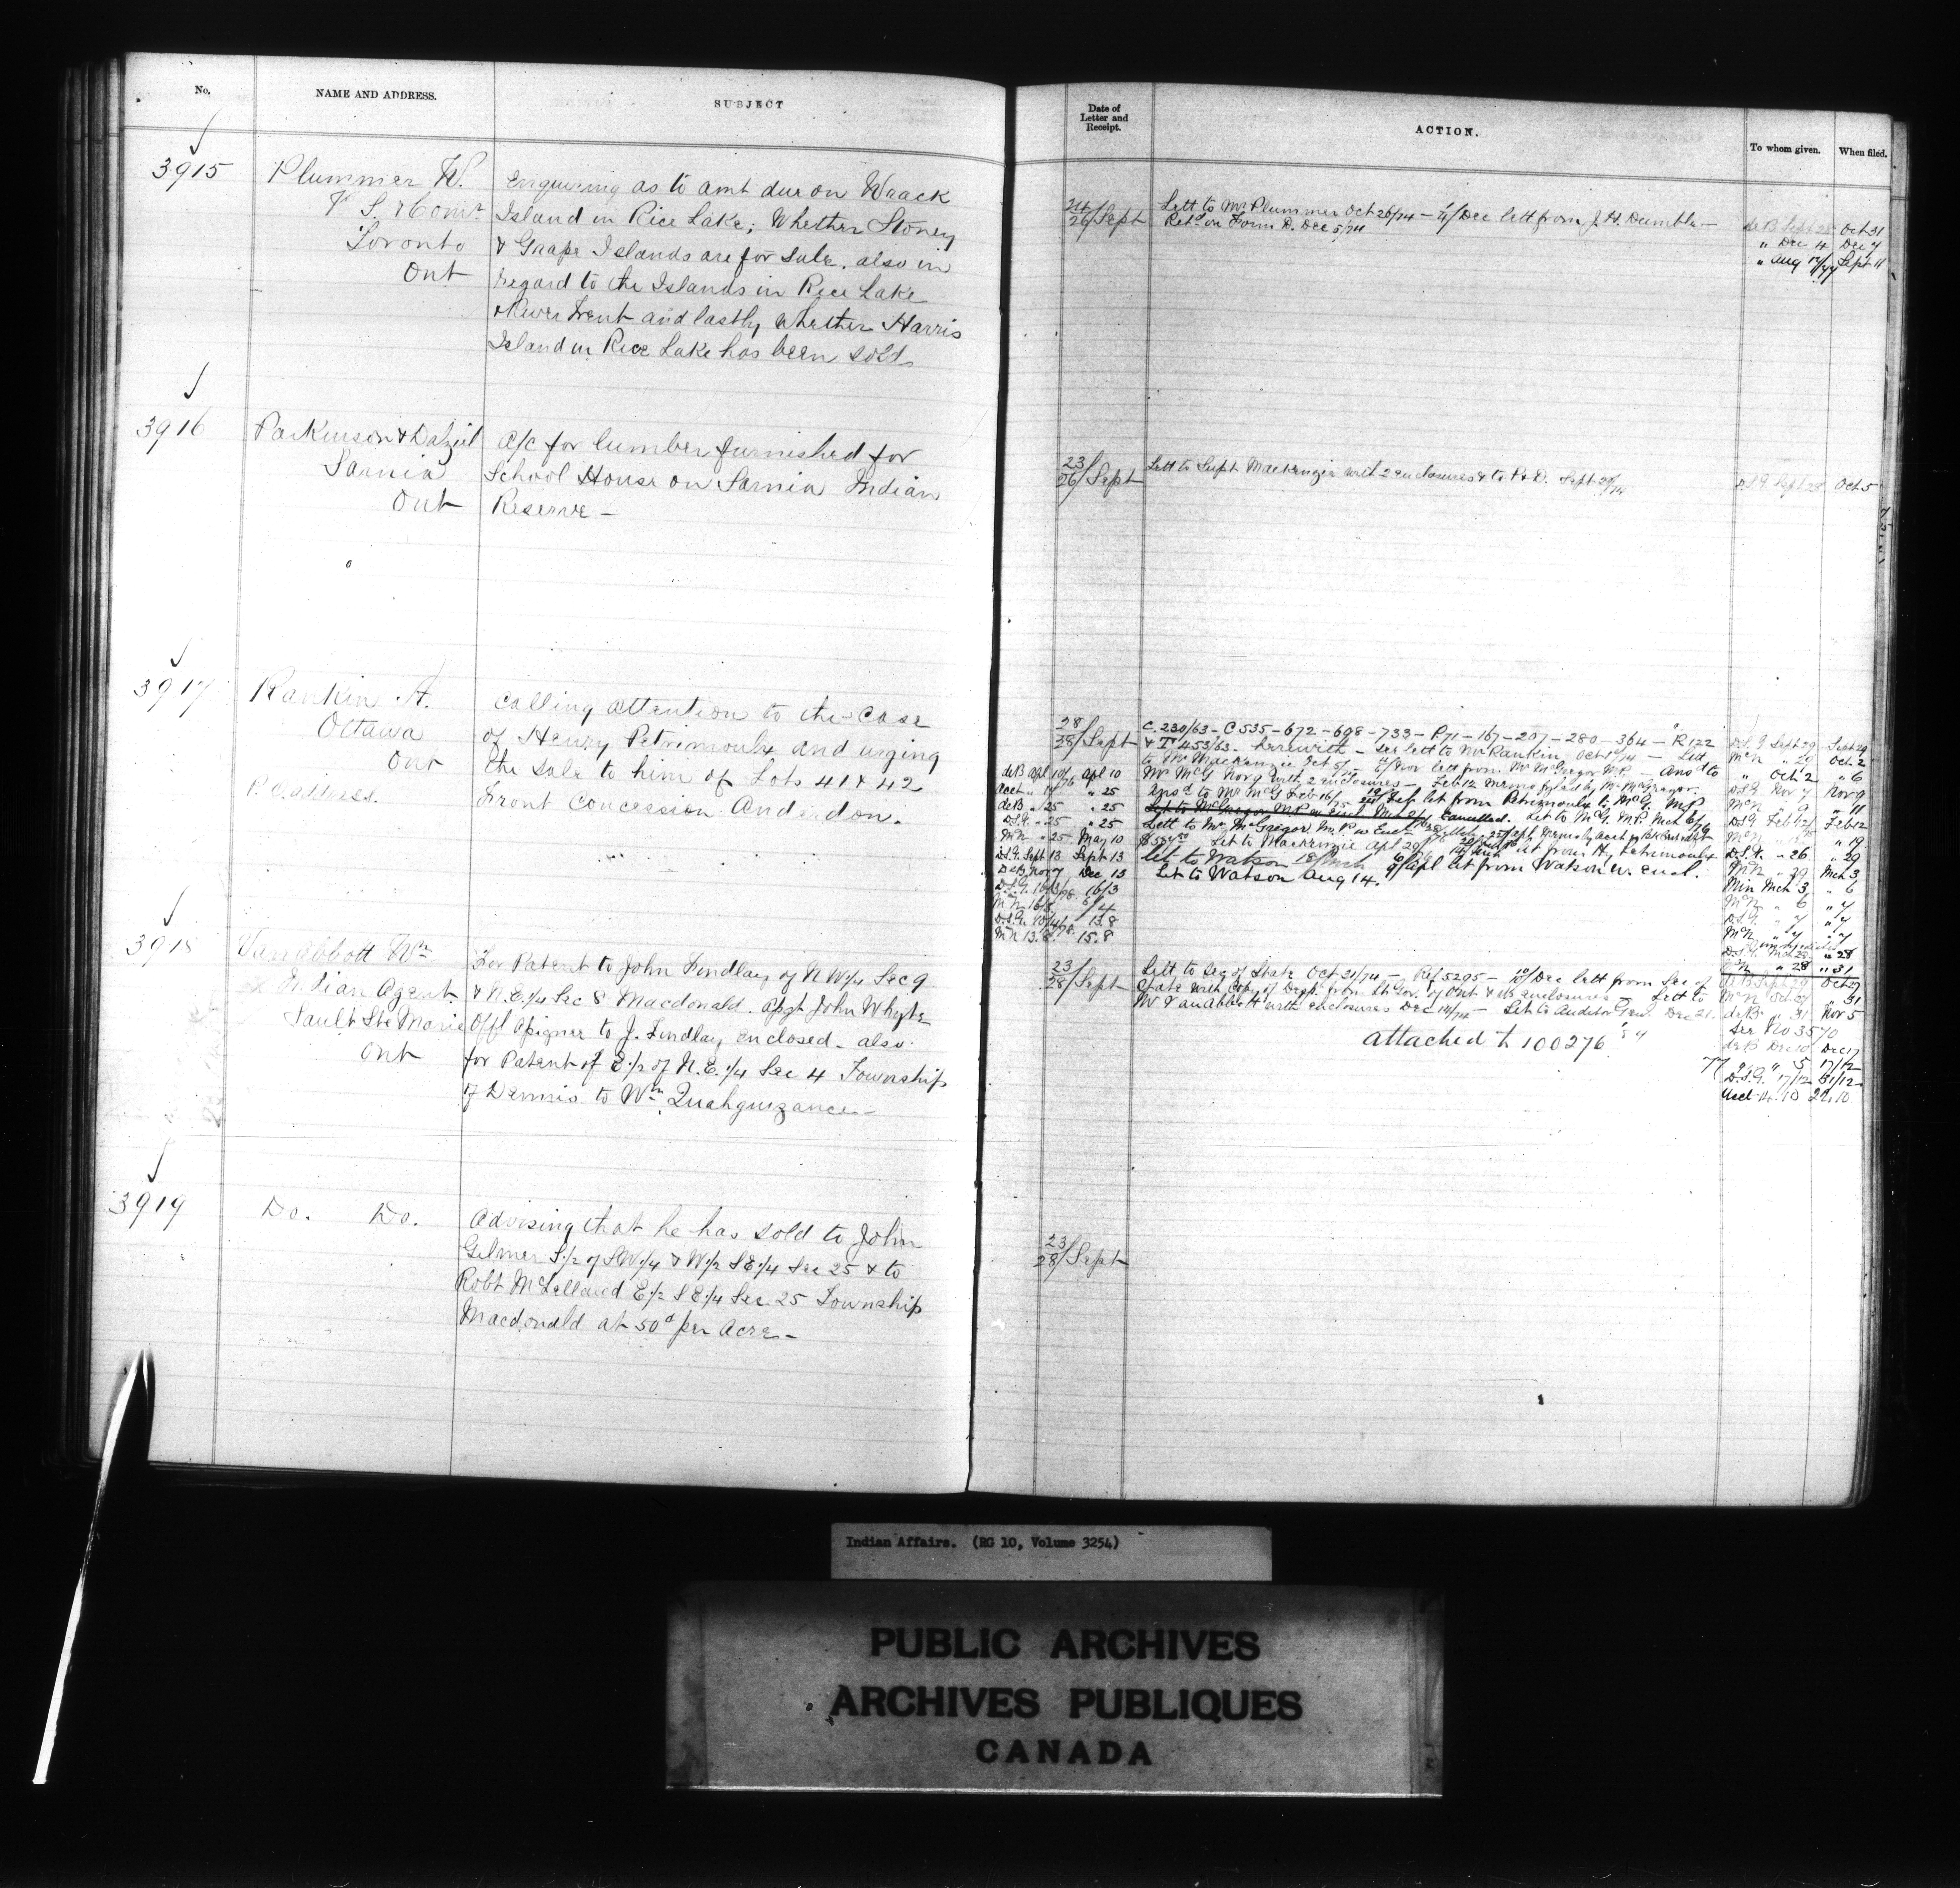 No.
NAME AND ADDRESS.
SUBJECT
Date of
Letter and
Receipt.
ACTION.
To whom given.
When filed.
3915
Plummer W.
V. S. Comr
Toronto
Ont
Enquiring as to amt due on Waack
Island in Rice Lake; Whether Stoney
& Grape Islands are for Sale. also in
regard to the Islands in Rice Lake
& River Trent and lastly whether Harris
Island in Rice Lake has been sold
24/26/Sept
Lett to Mr Plummer Oct 26/74 – Dec lett from J. H. Dumble –
Retd on Form D. Dec 5/74
deB Sept 28 Oct 31
" Dec 4 Dec 7
" Aug Sept 11
3916
Parkinson & Dalziel
Sarnia
Ont
A/c for lumber furnished for
School House on Sarnia Indian
Reserve –
23/26/Sept
Lett to Supt Mackenzie with 2 enclosures & to P & D. Sept 28/74
D.S.G. Sept 28 Oct 5
3917
Rankin A.
Ottawa
Ont
P.O. address.
Calling attention to the Case
of Henry Petrimoulx and urging
the Sale to him of Lots 41 & 42
Front Concession Anderdon.
28/28/Sept
C. 230/63 – C 535 – 672 – 698 – 733 – P71 – 167 – 207 – 280 – 364 – R 122
& T 453/63 – herewith – see lett to Mr Rankin Oct 1/74 – Lett
to Mr Mackenzie Oct 5/ – Nov lett from Mr McGregor M.P. – Ansd to
Mr McG Nov 9 with 2 enclosures – Feb 12 Memo by Mr McGregor.
Ansd to Mr McG Feb 16/75 let from Petrimoulx to McG. M.P.
Let to McGregor M.P. w Encl Mch Cancelled. Let to McG. M.P. Mch 6/
Lett to Mr McGregor M.P. w Encl
Let to Mackenzie Apl 29 let from Hy Petrimoulx
Let to Watson 18/Mch 9/Apl let from Watson w. encl.
Let to Watson Aug 14.
deB Apl 10/76 Apl 10
Acct " 14 " 25
deB " 25 " 25
D.S.G. " 25 " 25
McN " 25 May 10
D.S.G. Sept 13 Sept 13
DeB Nov 7 Dec 13
D.S.G. 16/3/78 16/3
D.S.G. 10/4/78 13.8
McN 13.8 15.8
D.S.G. Sept 29 Sept 29
McN " 29 Oct 2
" Oct 2 " 6
D.S.G. Nov 7 Nov 9
McN " 9 " 11
D.S.G. Feb 12/ Feb 12
D.S.G. " 26 " 29
McN " 29 Mch 3
Min Mch 3 " 6
McN " 6 " 7
D.S.G. " 7 " 7
McN " 7 " 7
" 28 " 31
3918
Van Abbott Wm
Indian Agent
Sault Ste Marie
Ont
For Patent to John Findlay of N W 1/4 Sec 9
& N.E. 1/4 Sec 8 Macdonald. Assgt John Whyte
Offl Assignee to J. Findlay enclosed – also
for Patent of E 1/2 of N.E. 1/4 Sec 4 Township
of Dennis to Wm Quahguezance –
23/28/Sept
Lett to Sec of State Oct 31/74 – Ref 5295 – Dec lett from Sec of
State with Copy of Desp. from Lt. Gov. of Ont & its enclosures – Lett to
Mr Van Abbott with enclosures Dec 14/74 – Let to Auditor Genl Dec 21.
attached to 100276
Oct 27
McN Oct 27 " 31
deB " 31 Nov 5
See No 3570
deB Dec 10 Dec 17
D.S.G. 17/12 31/12
3919
Do. Do.
Advising that he has sold to John
Gilmer S 1/2 of S.W 1/4 & W 1/2 S E 1/4 Sec 25 & to
Robt McLelland E 1/2 S E 1/4 Sec. 25 Township
Macdonald at 50d per Acre –
23/28/Sept
Indian Affairs. (RG 10, Volume 3254)
PUBLIC ARCHIVES
ARCHIVES PUBLIQUES
CANADA